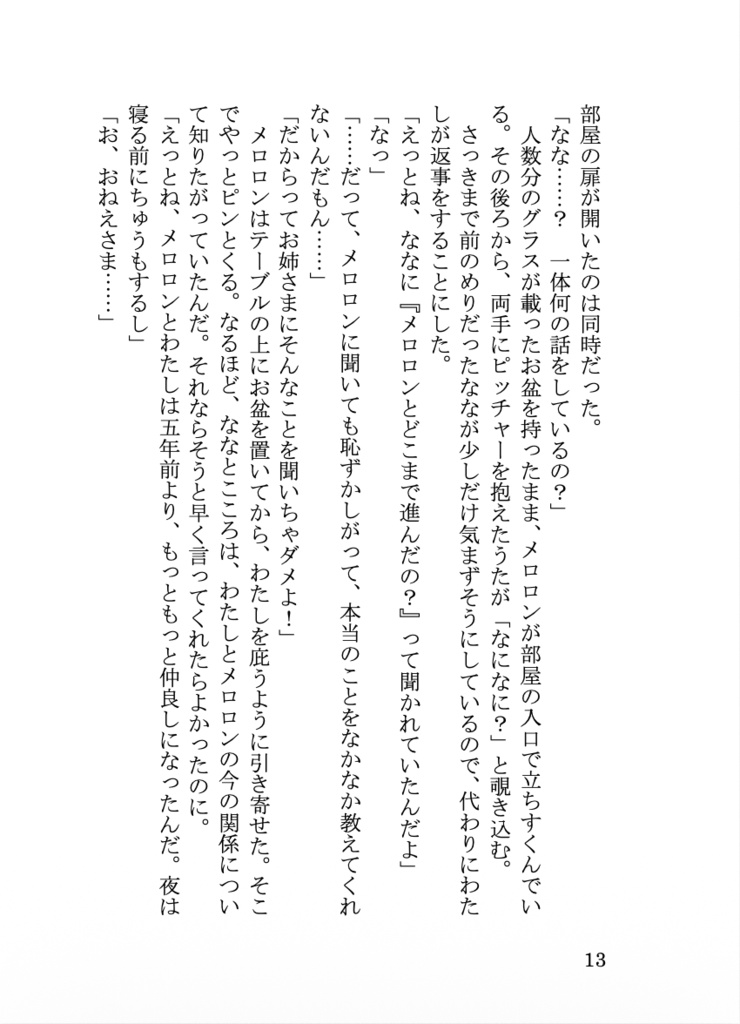 部屋の扉が開いたのは同時だった。
「なな……？　一体何の話をしているの？」
　人数分のグラスが載ったお盆を持ったまま、メロロンが部屋の入口で立ちすくんでい
る。その後ろから、両手にピッチャーを抱えたうたが「なになに？」と覗き込む。
　さっきまで前のめりだったななが少しだけ気まずそうにしているので、代わりにわた
しが返事をすることにした。
「えっとね、ななに『メロロンとどこまで進んだの？』って聞かれていたんだよ」
「なっ」
「……だって、メロロンに聞いても恥ずかしがって、本当のことをなかなか教えてくれ
ないんだもん……」
「だからってお姉さまにそんなことを聞いちゃダメよ！」
　メロロンはテーブルの上にお盆を置いてから、わたしを庇うように引き寄せた。そこ
でやっとピンとくる。なるほど、ななとこころは、わたしとメロロンの今の関係につい
て知りたがっていたんだ。それならそうと早く言ってくれたらよかったのに。
「えっとね、メロロンとわたしは五年前より、もっともっと仲良しになったんだ。夜は
寝る前にちゅうもするし」
「お、おねえさま……」
13